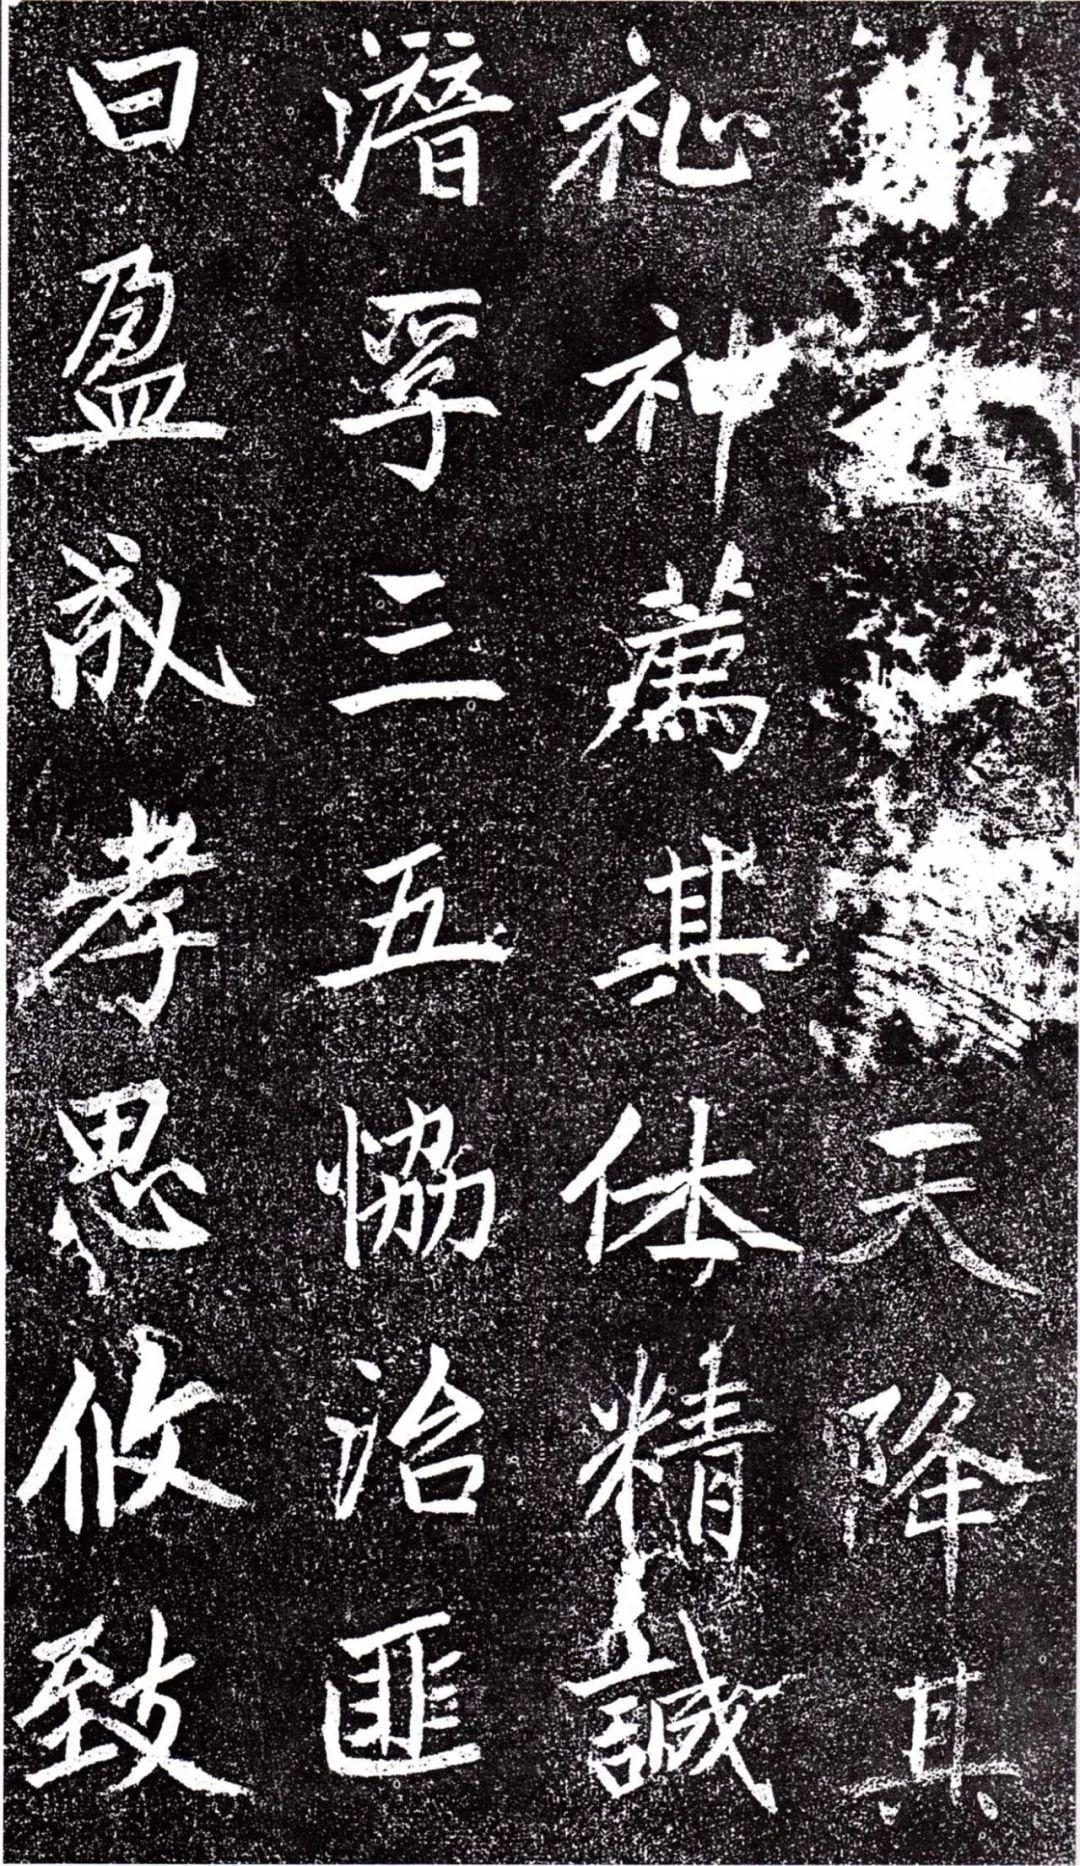 天降其
祉神薦其休精誠
潛孚三五恊治匪
曰盈成孝思攸致